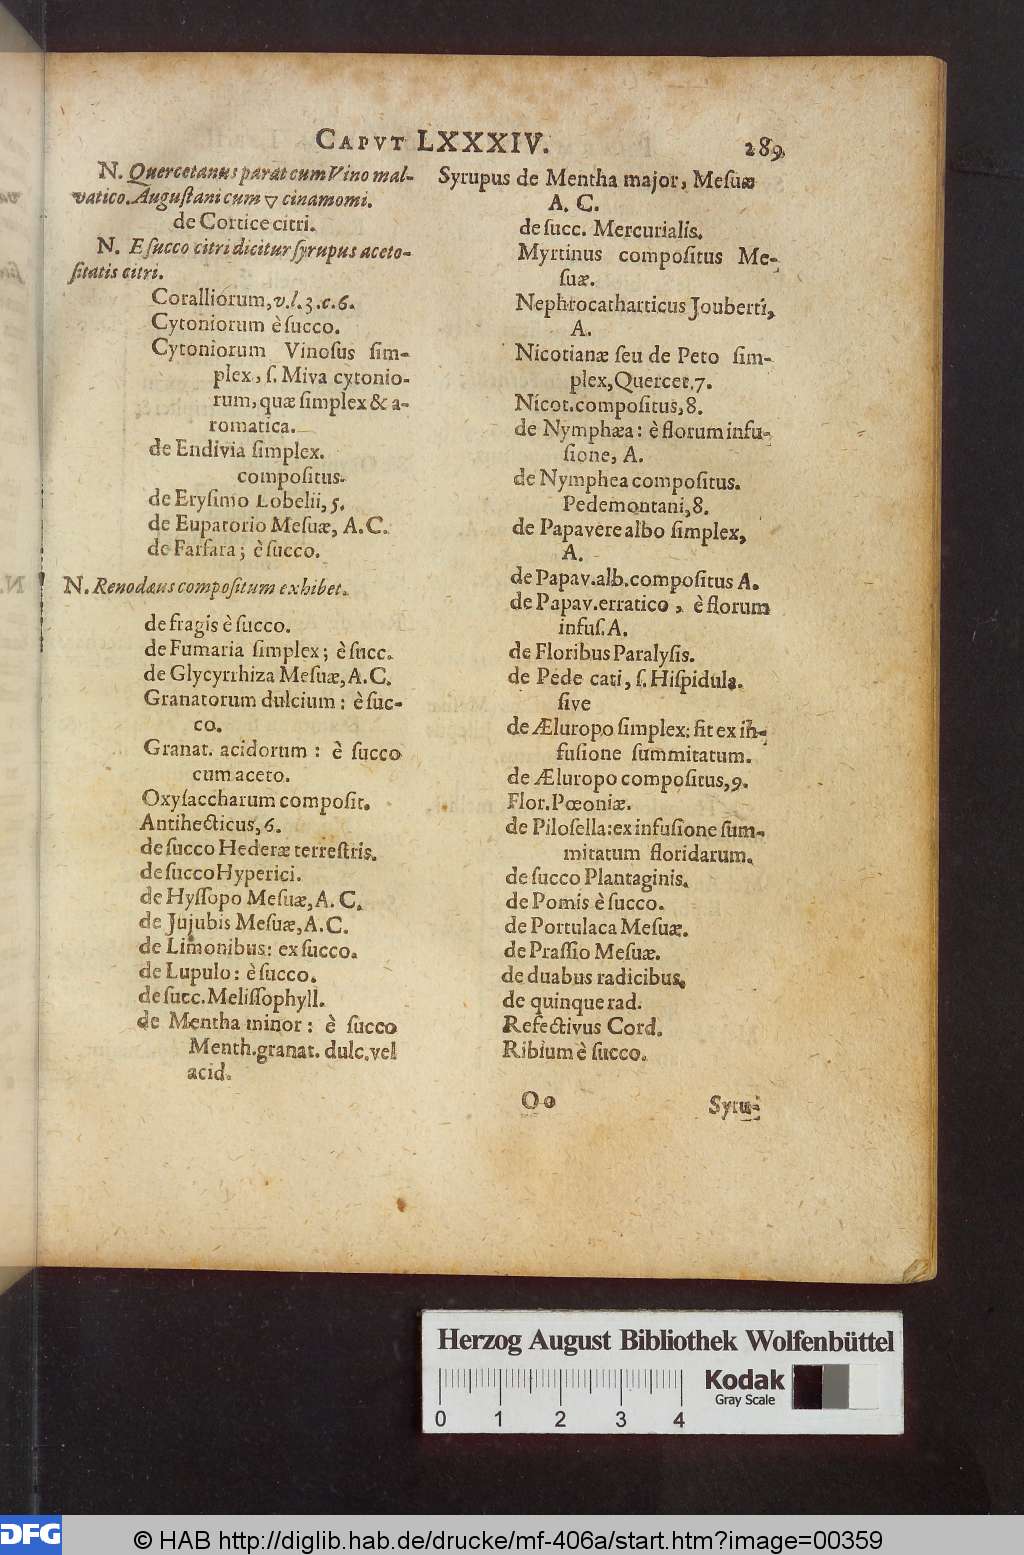 CAPVT LXXXIV. 289
N. Quercetanus parat cum Vino mal-
vatico. Augustani cum ▽ cinamomi.
de Cortice citri.
N. E succo citri dicitur syrupus aceto-
sitatis citri.
Coralliorum, v. l. 3. c. 6.
Cytoniorum è succo.
Cytoniorum Vinosus sim-
plex, s. Miva cytonio-
rum, quæ simplex & a-
romatica.
de Endivia simplex.
compositus.
de Erysimo Lobelii, 5.
de Eupatorio Mesuæ, A. C.
de Farfara; è succo.
N. Renodæus compositum exhibet.
de fragis è succo.
de Fumaria simplex; è succ.
de Glycyrrhiza Mesuæ, A. C.
Granatorum dulcium: è suc-
co.
Granat. acidorum: è succo
cum aceto.
Oxysaccharum composit.
Antihecticus, 6.
de succo Hederæ terrestris.
de succo Hyperici.
de Hyssopo Mesuæ, A. C.
de Jujubis Mesuæ, A. C.
de Limonibus: ex succo.
de Lupulo: è succo.
de succ. Melissophyll.
de Mentha minor: è succo
Menth. granat. dulc. vel
acid.
Syrupus de Mentha major, Mesuæ
A. C.
de succ. Mercurialis.
Myrtinus compositus Me-
suæ.
Nephrocatharticus Jouberti,
A.
Nicotianæ seu de Peto sim-
plex, Quercet. 7.
Nicot. compositus, 8.
de Nymphæa: è florum infu-
sione, A.
de Nymphea compositus.
Pedemontani, 8.
de Papavere albo simplex,
A.
de Papav. alb. compositus A.
de Papav. erratico, è florum
infus. A.
de Floribus Paralysis.
de Pede cati, s. Hispidula.
sive
de Æluropo simplex: fit ex in-
fusione summitatum.
de Æluropo compositus, 9.
Flor. Pœoniæ.
de Pilosella: ex infusione sum-
mitatum floridarum.
de succo Plantaginis.
de Pomis è succo.
de Portulaca Mesuæ.
de Prassio Mesuæ.
de duabus radicibus.
de quinque rad.
Refectivus Cord.
Ribium è succo.
Oo Syru-
Herzog August Bibliothek Wolfenbüttel
Kodak
Gray Scale
0 1 2 3 4
DFG
© HAB http://diglib.hab.de/drucke/mf-406a/start.htm?image=00359